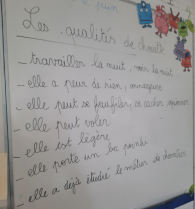 juin
Les qualités de
_ travailler la nuit, voir la nuit
_ elle a peur de rien,
_ elle peut se faufiler, se cacher
_ elle peut voler
_ elle est légère
_ elle porte un
_ elle a déjà étudié le métier de